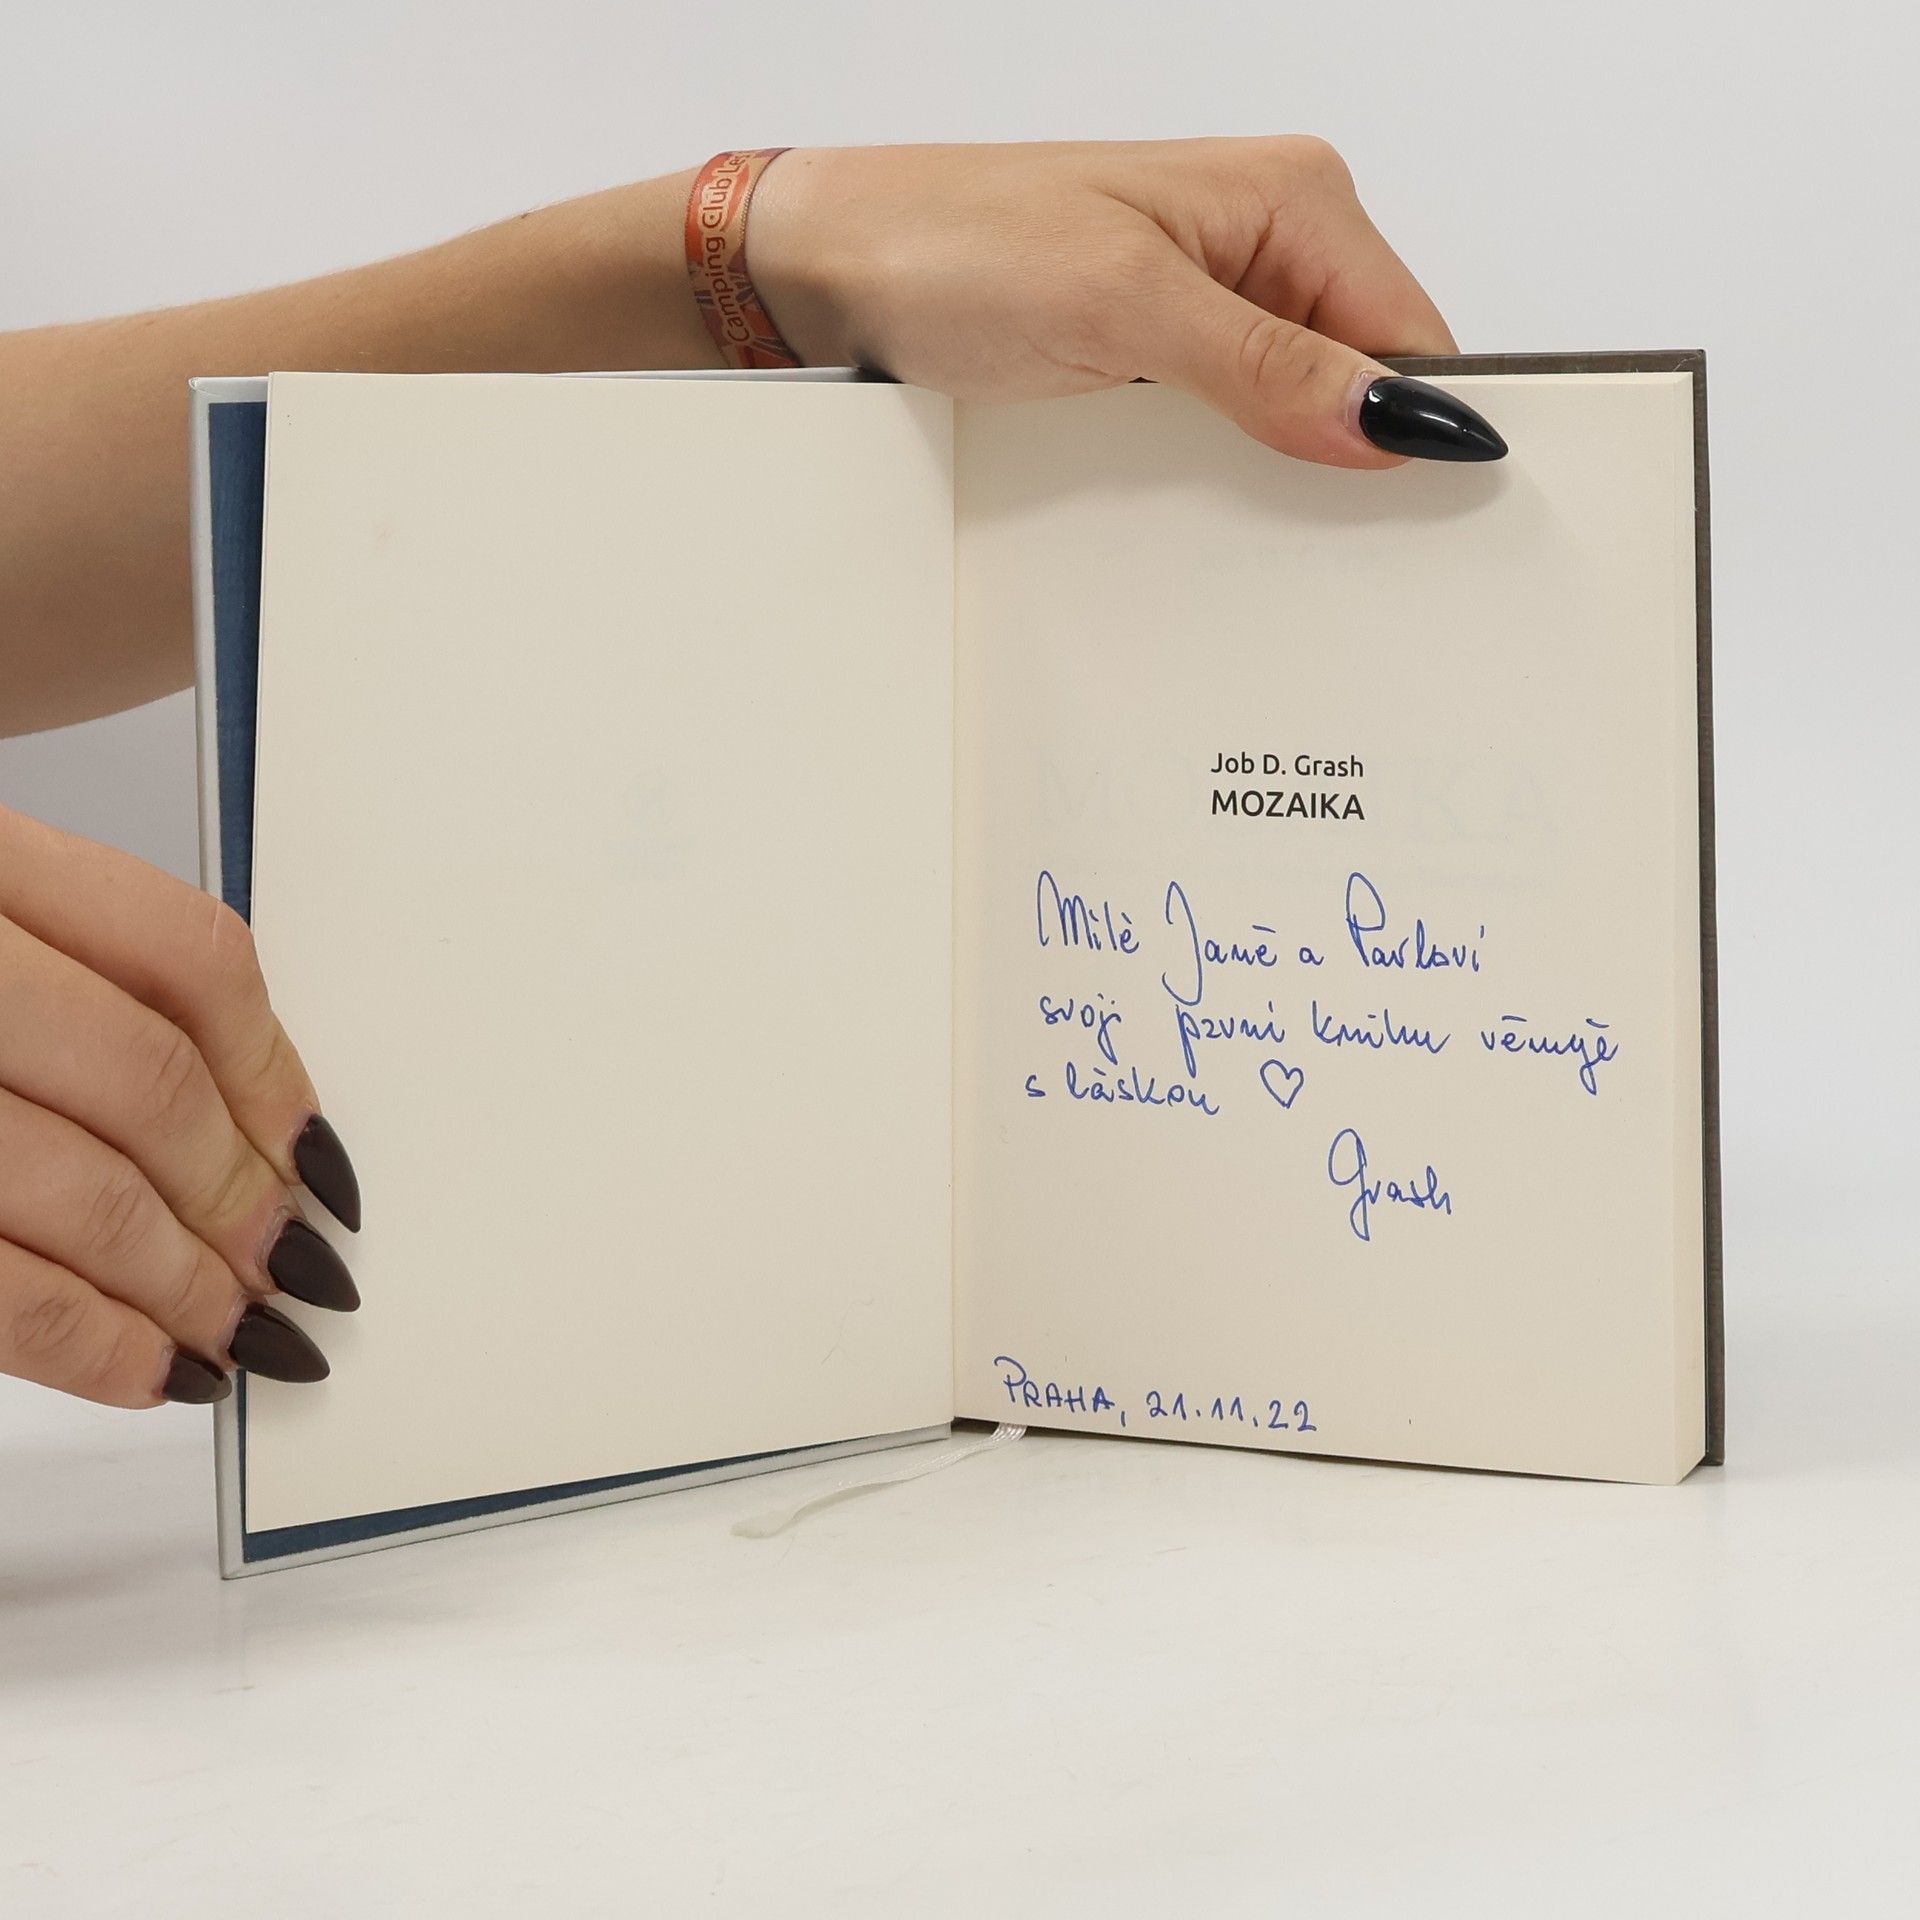 Camping Club Les
Job D. Grash
MOZAIKA
Milé Janě a Pavlovi
svoji první knihu věnuje
s láskou ♡
Grash
PRAHA, 21.11.22